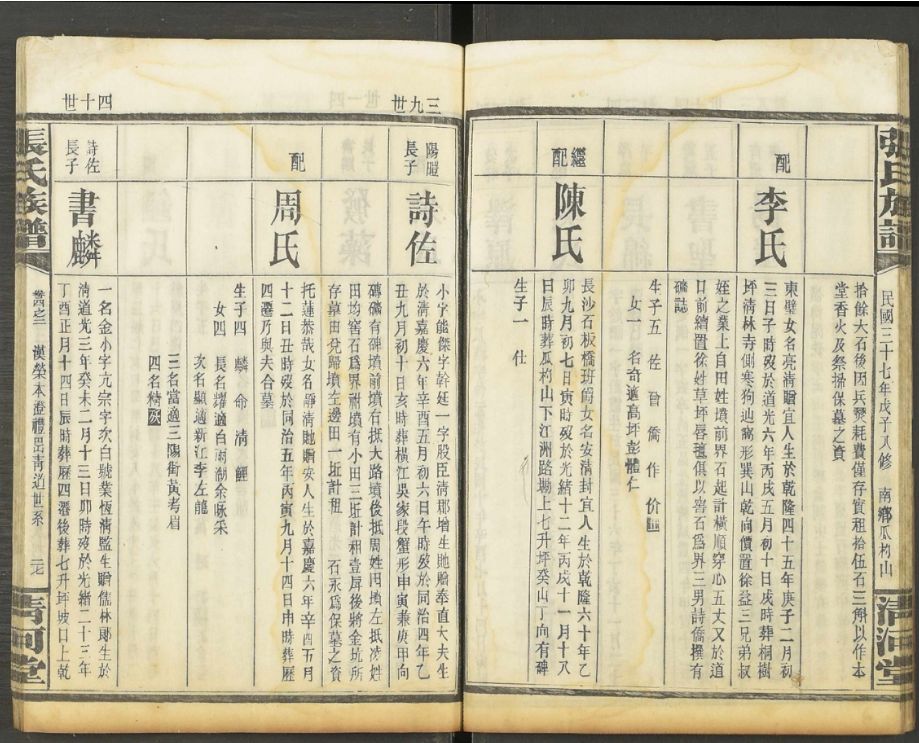 張氏族譜
民國三十七年戊子八修 南鄉瓜杓山
清河堂
拾餘大石後因兵燹耗費僅存實租拾伍石三斛以作本
堂香火及祭掃保墓之資
配
李氏
東壁女名亮清贈宜人生於乾隆四十五年庚子二月初
三日子時歿於道光六年丙戌五月初十日戌時葬桐樹
坪清林寺側寒狗過 形巽山乾向價置徐益三兄弟叔
姪之業上自田姓墳前界石起計橫順穿心五丈又於道
口前續置徐姓草坪唇毯俱以窖石爲界三男詩僑撰有
礦誌
生子五 佐 晉 僑 作 价
女一 名奇適高坪彭體仁
繼配
陳氏
長沙石板橋班爵女名安清封宜人生於乾隆六十年乙
卯九月初七日寅時歿於光緒十二年丙戌十一月十八
日辰時葬瓜杓山下江洲路塝上七升坪癸山丁向有碑
生子一 仕
三九世
陽暟
長子
詩佐
小字能傑字幹廷一字股臣清郡增生貤贈奉直大夫生
於清嘉慶六年辛酉五月初六日午時歿於同治四年乙
丑九月初十日亥時葬橫江吳家段蟹形申寅兼庚甲向
磚礦有碑墳前墳右抵大路墳後抵周姓田墈左抵凌姓
田均窖石爲界祔墳右小田三坵計租壹石後將金坑所
存墓田兌歸墳左邊田一坵計租 石永爲保墓之資
配
周氏
托蓮恭哉女名靜清貤贈安人生於嘉慶六年辛酉五月
十二日丑時歿於同治五年丙寅九月十四日申時葬歷
四遷乃與夫合墓
生子四 麟 命 清 鯉
女四 長名 適白 湖余咏采
次名顯適新江李左龍
三名富適三陽街黃考眉
四名
四十世
詩佐
長子
書麟
一名金小字亢宗字次白號業恆清監生贈儒林郎生於
清道光三年癸未二月十三日卯時歿於光緒二十三年
丁酉正月十四日辰時葬歷四遷後葬七升坪坡口上乾
張氏族譜
漢榮本澄禮邑靑道世系
清河堂